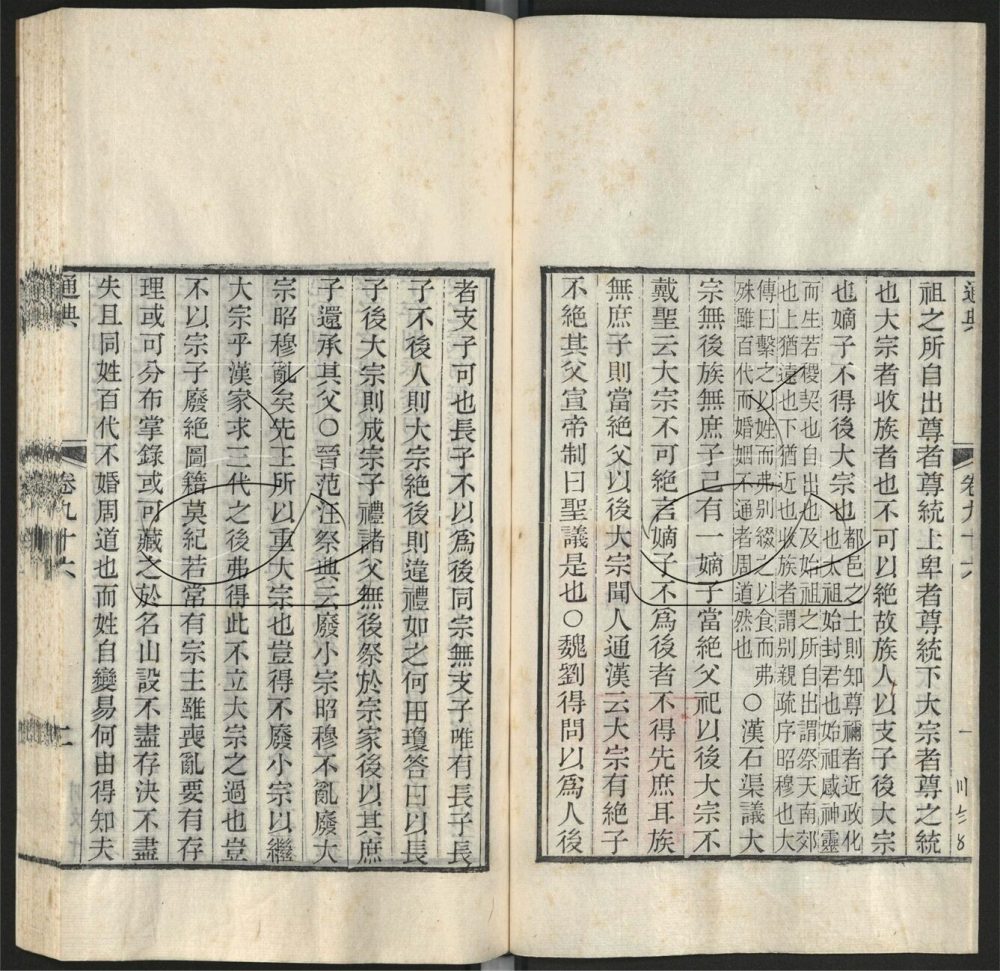 通典 卷九十六 一
祖之所自出尊者尊統上卑者尊統下大宗者尊之統
也大宗者收族者也不可以絶故族人以支子後大宗
也嫡子不得後大宗也
都邑之士則知尊禰者近政化
也太祖始封君也始祖感神靈
而生若稷契也自出也及始祖之所自出謂祭天南郊
也上猶遠也下猶近也收族者謂別親疏序昭穆也大
傳曰繫之以姓而弗別綴之以食而弗
殊雖百代而婚姻不通者周道然也
○漢石渠議大
宗無後族無庶子己有一嫡子當絶父祀以後大宗不
戴聖云大宗不可絶言嫡子不爲後者不得先庶耳族
無庶子則當絶父以後大宗聞人通漢云大宗有絶子
不絶其父宣帝制曰聖議是也○魏劉得問以爲人後
者支子可也長子不以爲後同宗無支子唯有長子長
子不後人則大宗絶後則違禮如之何田瓊答曰以長
子後大宗則成宗子禮諸父無後祭於宗家後以其庶
子還承其父○晉范汪祭典云廢小宗昭穆不亂廢大
宗昭穆亂矣先王所以重大宗也豈得不廢小宗以繼
大宗乎漢家求三代之後弗得此不立大宗之過也豈
不以宗子廢絶圖籍莫紀若常有宗主雖喪亂要有存
理或可分布掌錄或可藏之於名山設不盡存決不盡
失且同姓百代不婚周道也而姓自變易何由得知夫
通典 卷九十六 二